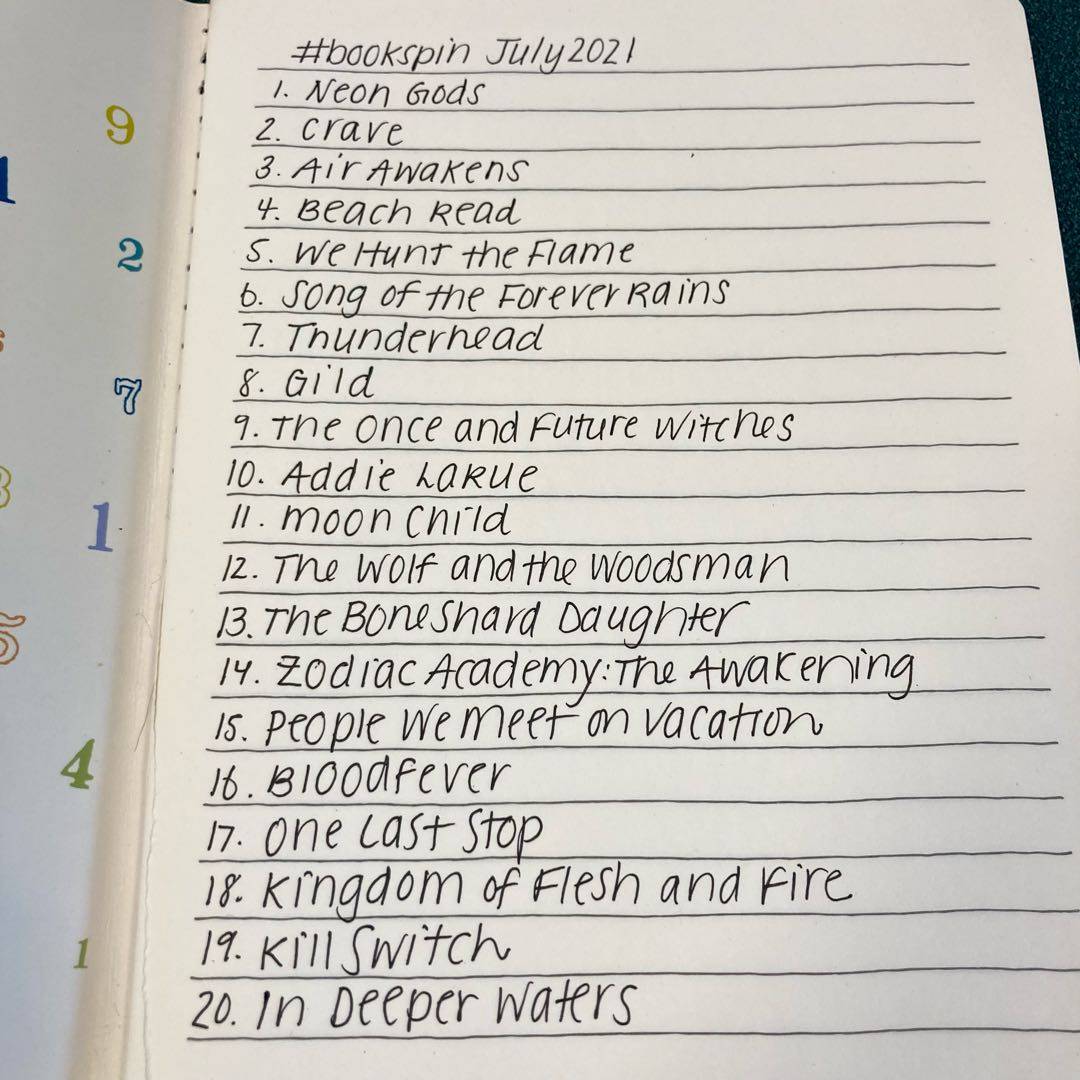 #bookspin July 2021
1. Neon Gods
2. Crave
3. Air Awakens
4. Beach Read
5. We Hunt the Flame
6. Song of the Forever Rains
7. Thunderhead
8. Gild
9. The Once and Future Witches
10. Addie LaRue
11. Moon Child
12. The Wolf and the Woodsman
13. The Bone Shard Daughter
14. Zodiac Academy: The Awakening
15. People We Meet on Vacation
16. Bloodfever
17. One Last Stop
18. Kingdom of Flesh and Fire
19. Kill Switch
20. In Deeper Waters
9
1
2
7
1
5
4
1